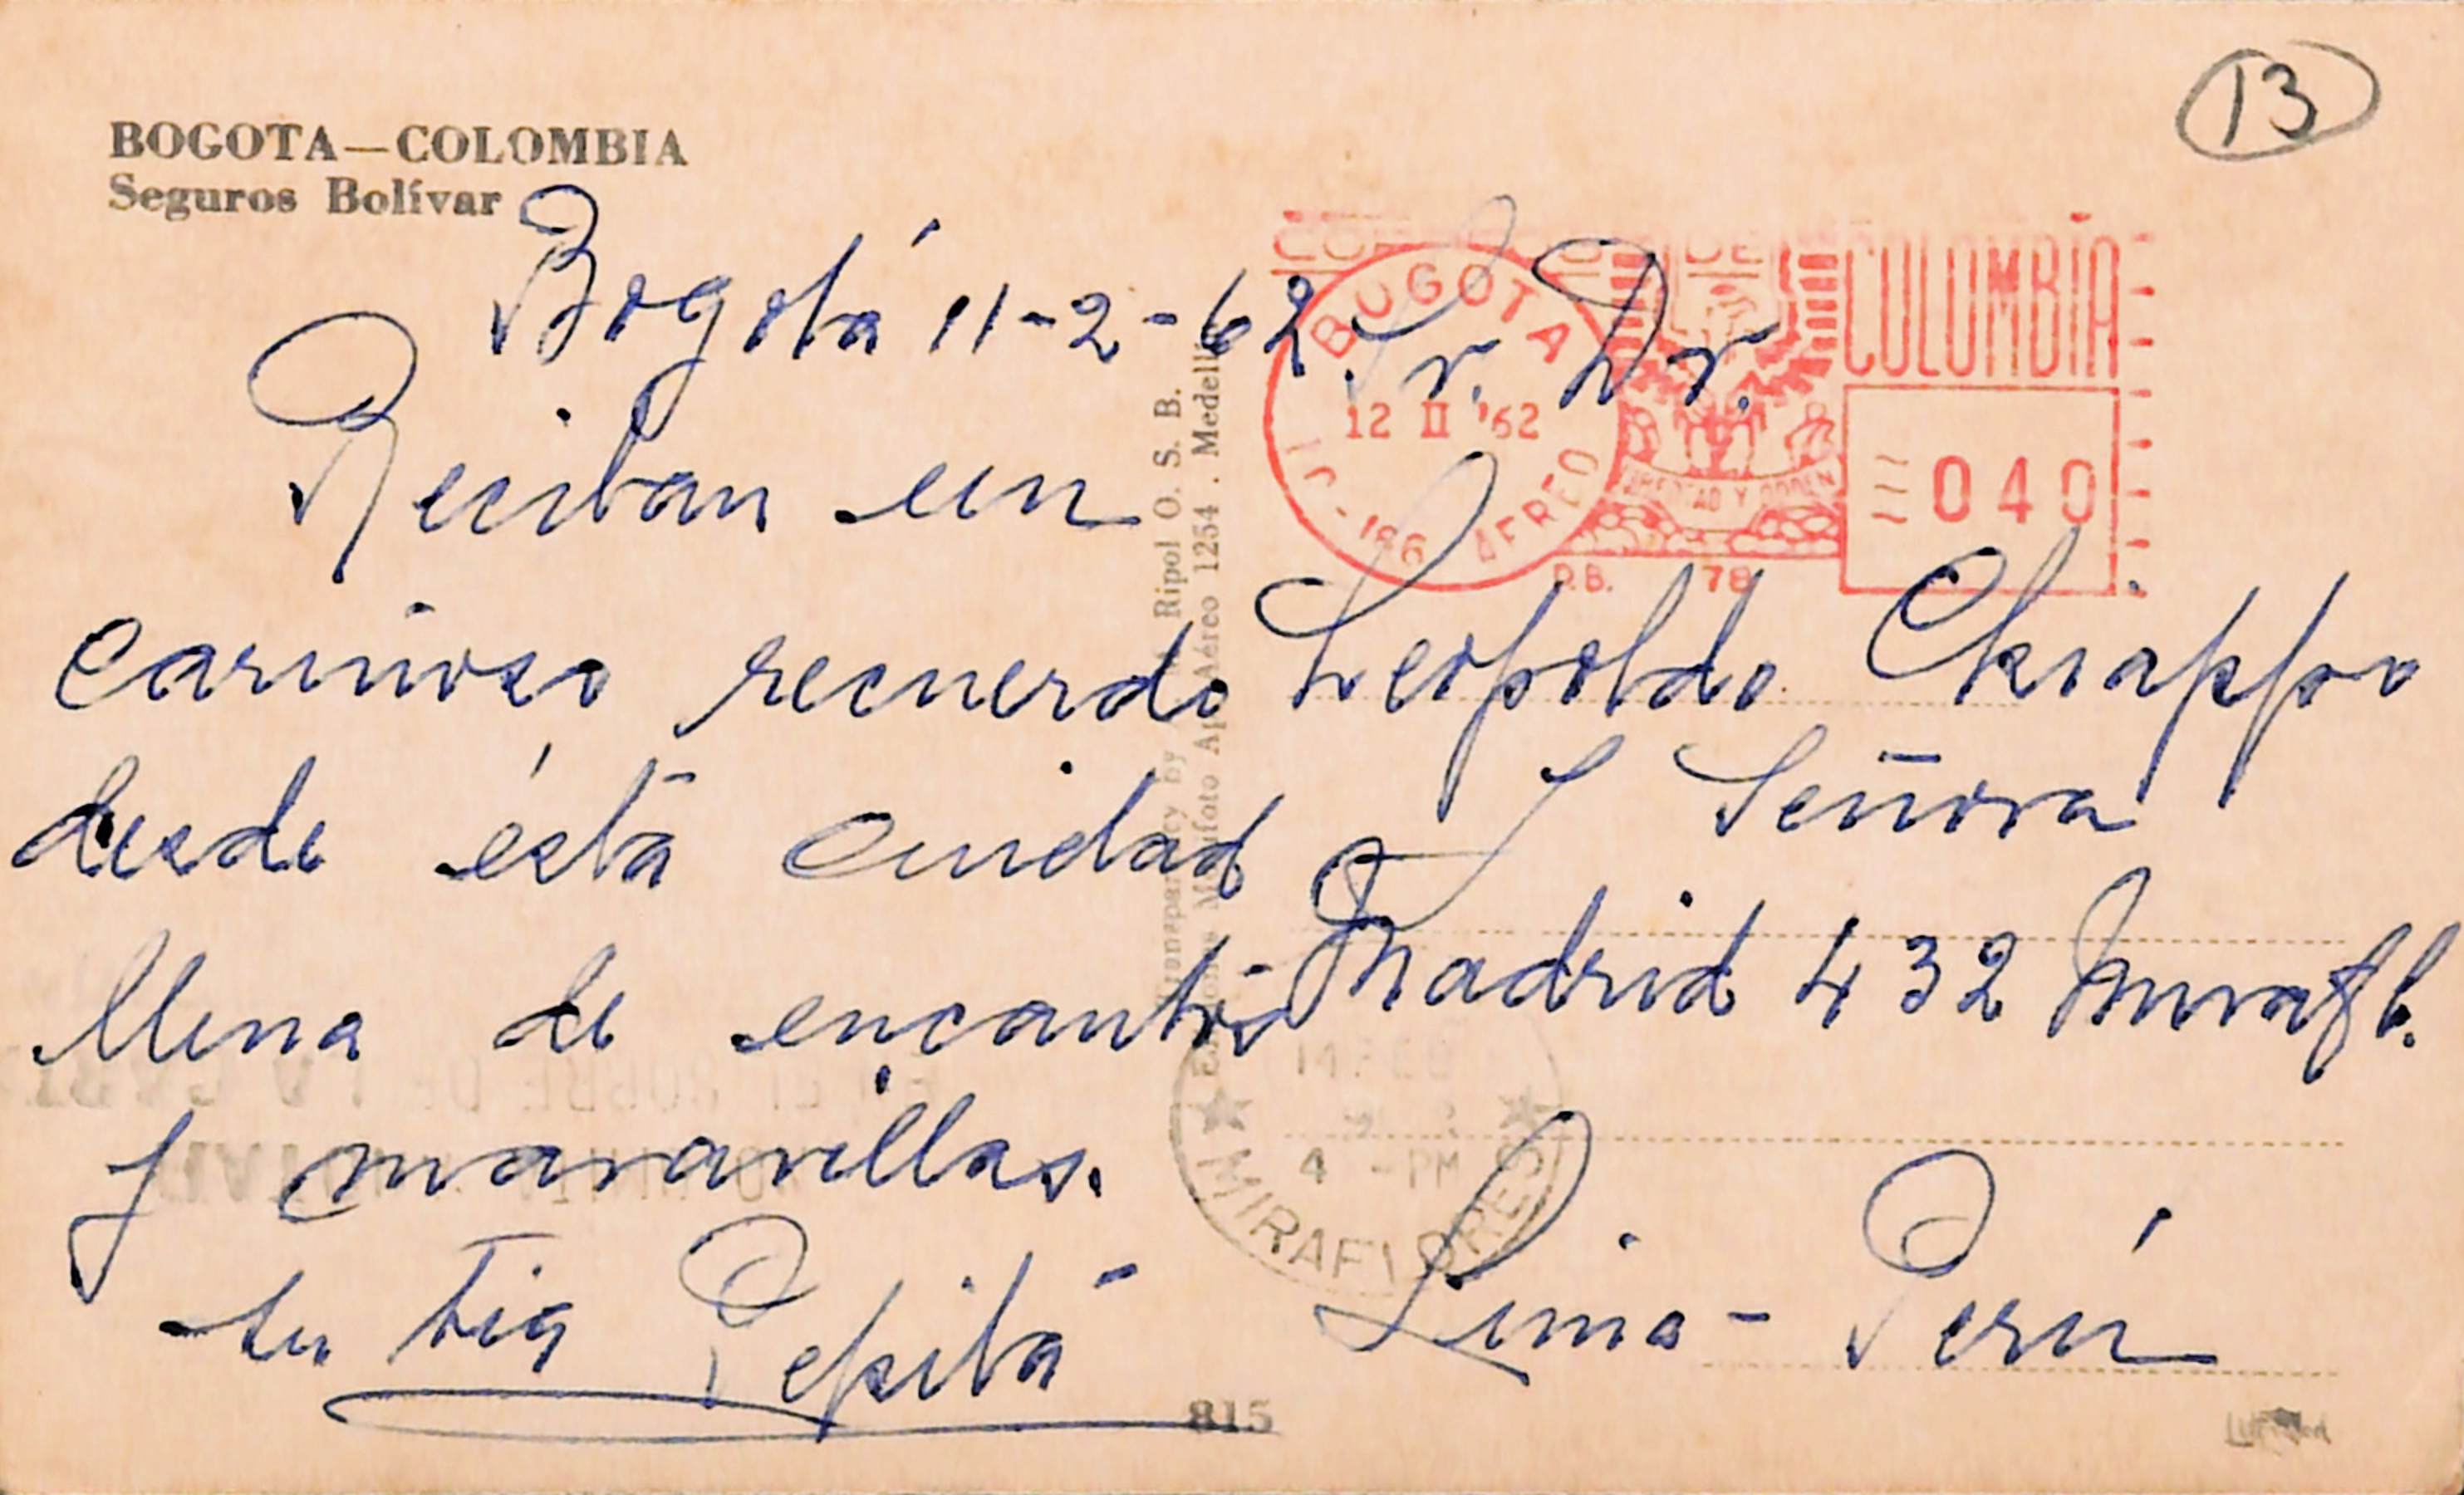 13
BOGOTA—COLOMBIA
Seguros Bolívar
Bogotá 11-2-62
Reciban un
cariñoso recuerdo
desde ésta ciudad
llena de encantos
y maravillas.
tu tia Pepita
Sr. Dr.
Leopoldo Chiappo
y Señora
Madrid 432 Mirafl.
Lima - Perú
CORREOS DE COLOMBIA
BOGOTA
12 II '62
AEREO
LIBERTAD Y ORDEN
040
P.B. 78
Ripol O. S. B.
Aéreo 1254 . Medellín
4 - PM
MIRAFLORES
815